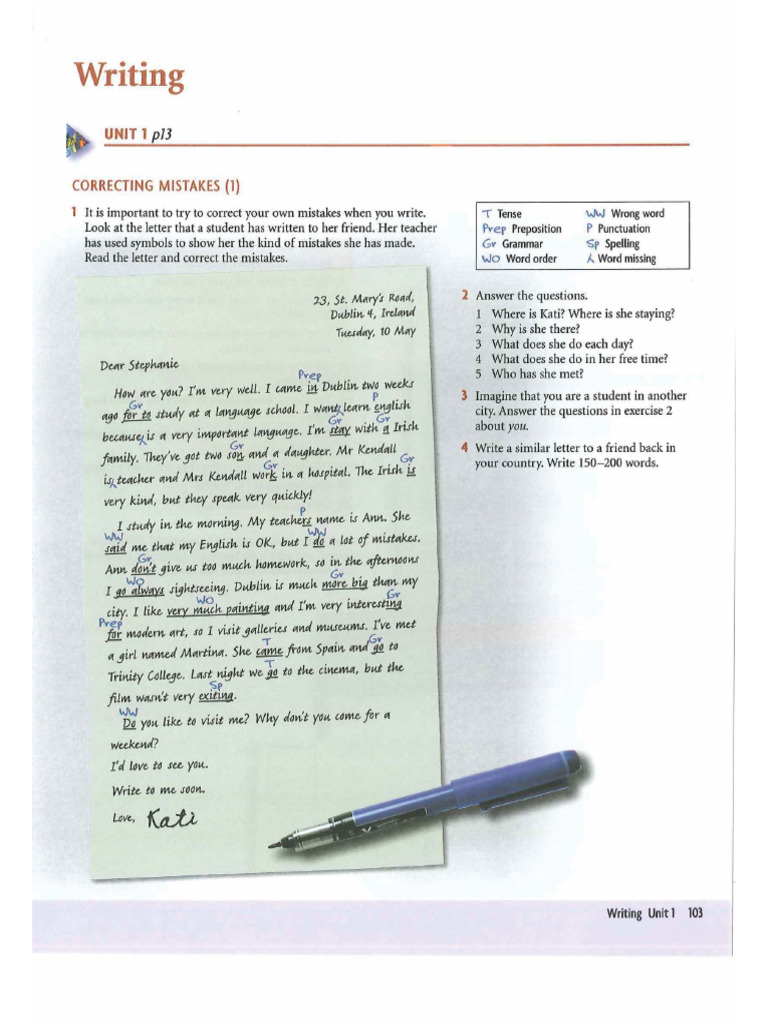 Writing
UNIT 1 p13
CORRECTING MISTAKES (1)
1 It is important to try to correct your own mistakes when you write.
Look at the letter that a student has written to her friend. Her teacher
has used symbols to show her the kind of mistakes she has made.
Read the letter and correct the mistakes.
T Tense WW Wrong word
Prep Preposition P Punctuation
Gr Grammar Sp Spelling
WO Word order ⁁ Word missing
23, St. Mary's Road,
Dublin 4, Ireland
Tuesday, 10 May
Dear Stephanie
Prep
How are you? I'm very well. I came in Dublin two weeks
Gr P
ago for to study at a language school. I want⁁learn english
Gr Gr
because⁁is a very important language. I'm stay with a Irish
Gr
family. They've got two son and a daughter. Mr Kendall
Gr Gr
is⁁teacher and Mrs Kendall work in a hospital. The Irish is
very kind, but they speak very quickly!
P
I study in the morning. My teachers name is Ann. She
WW WW
said me that my English is OK, but I do a lot of mistakes.
Gr
Ann don't give us too much homework, so in the afternoons
WO Gr
I go always sightseeing. Dublin is much more big than my
WO Gr
city. I like very much painting and I'm very interesting
Prep
for modern art, so I visit galleries and museums. I've met
T Gr
a girl named Martina. She came from Spain and go to
T
Trinity College. Last night we go to the cinema, but the
Sp
film wasn't very exiting.
WW
Do you like to visit me? Why don't you come for a
weekend?
I'd love to see you.
Write to me soon.
Love, Kati
2 Answer the questions.
1 Where is Kati? Where is she staying?
2 Why is she there?
3 What does she do each day?
4 What does she do in her free time?
5 Who has she met?
3 Imagine that you are a student in another
city. Answer the questions in exercise 2
about you.
4 Write a similar letter to a friend back in
your country. Write 150–200 words.
Writing Unit 1 103